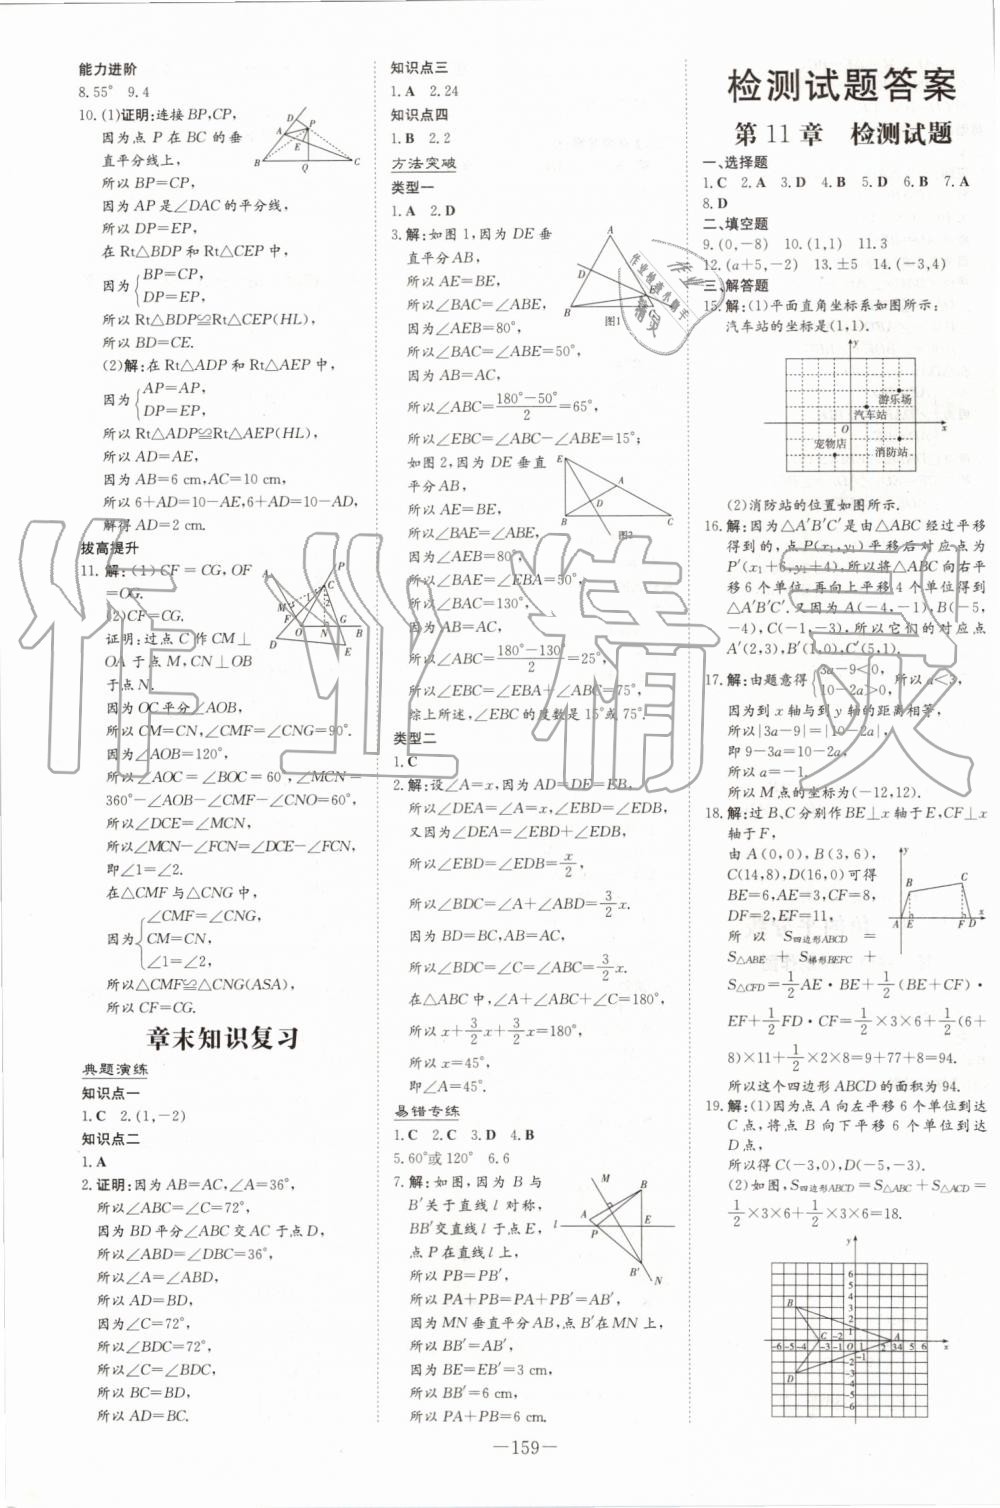 能力进阶
8.55° 9.4
10.(1)证明:连接BP,CP,
因为点 P 在 BC 的垂
直平分线上,
所以 BP=CP,
因为 AP 是∠DAC 的平分线,
所以 DP=EP,
在 Rt△BDP 和 Rt△CEP 中,
因为{BP=CP,
DP=EP,
所以 Rt△BDP≌Rt△CEP(HL),
所以 BD=CE.
(2)解:在 Rt△ADP 和 Rt△AEP 中,
因为{AP=AP,
DP=EP,
所以 Rt△ADP≌Rt△AEP(HL),
所以 AD=AE,
因为 AB=6 cm,AC=10 cm,
所以 6+AD=10-AE,6+AD=10-AD,
解得 AD=2 cm.
拔高提升
11.解:(1)CF=CG,OF
=OG.
(2)CF=CG.
证明:过点 C 作 CM⊥
OA 于点 M,CN⊥OB
于点 N.
因为 OC 平分∠AOB,
所以 CM=CN,∠CMF=∠CNG=90°.
因为∠AOB=120°,
所以∠AOC=∠BOC=60°,∠MCN=
360°-∠AOB-∠CMF-∠CNO=60°,
所以∠DCE=∠MCN,
所以∠MCN-∠FCN=∠DCE-∠FCN,
即∠1=∠2.
在△CMF 与△CNG 中,
因为{∠CMF=∠CNG,
CM=CN,
∠1=∠2,
所以△CMF≌△CNG(ASA),
所以 CF=CG.
章末知识复习
典题演练
知识点一
1.C 2.(1,-2)
知识点二
1.A
2.证明:因为 AB=AC,∠A=36°,
所以∠ABC=∠C=72°,
因为 BD 平分∠ABC 交 AC 于点 D,
所以∠ABD=∠DBC=36°,
所以∠A=∠ABD,
所以 AD=BD,
因为∠C=72°,
所以∠BDC=72°,
所以∠C=∠BDC,
所以 BC=BD,
所以 AD=BC.
知识点三
1.A 2.24
知识点四
1.B 2.2
方法突破
类型一
1.A 2.D
3.解:如图 1,因为 DE 垂
直平分 AB,
所以 AE=BE,
所以∠BAC=∠ABE,
因为∠AEB=80°,
所以∠BAC=∠ABE=50°,
因为 AB=AC,
所以∠ABC=180°-50°/2=65°,
所以∠EBC=∠ABC-∠ABE=15°;
如图 2,因为 DE 垂直
平分 AB,
所以 AE=BE,
所以∠BAE=∠ABE,
因为∠AEB=80°,
所以∠BAE=∠EBA=50°,
所以∠BAC=130°,
因为 AB=AC,
所以∠ABC=180°-130°/2=25°,
所以∠EBC=∠EBA+∠ABC=75°,
综上所述,∠EBC 的度数是 15°或 75°.
图1
图2
类型二
1.C
2.解:设∠A=x,因为 AD=DE=EB,
所以∠DEA=∠A=x,∠EBD=∠EDB,
又因为∠DEA=∠EBD+∠EDB,
所以∠EBD=∠EDB=x/2,
所以∠BDC=∠A+∠ABD=3/2x.
因为 BD=BC,AB=AC,
所以∠BDC=∠C=∠ABC=3/2x.
在△ABC 中,∠A+∠ABC+∠C=180°,
所以 x+3/2x+3/2x=180°,
所以 x=45°,
即∠A=45°.
易错专练
1.C 2.C 3.D 4.B
5.60°或 120° 6.6
7.解:如图,因为 B 与
B′关于直线 l 对称,
BB′交直线 l 于点 E,
点 P 在直线 l 上,
所以 PB=PB′,
所以 PA+PB=PA+PB′=AB′,
因为 MN 垂直平分 AB,点 B′在 MN 上,
所以 BB′=AB′,
因为 BE=EB′=3 cm,
所以 BB′=6 cm,
所以 PA+PB=6 cm.
检测试题答案
第 11 章 检测试题
一、选择题
1.C 2.A 3.D 4.B 5.D 6.B 7.A
8.D
二、填空题
9.(0,-8) 10.(1,1) 11.3
12.(a+5,-2) 13.±5 14.(-3,4)
三、解答题
15.解:(1)平面直角坐标系如图所示:
汽车站的坐标是(1,1).
游乐场
汽车站
宠物店
消防站
(2)消防站的位置如图所示.
16.解:因为△A′B′C′是由△ABC 经过平移
得到的,点 P(x₁,y₁)平移后对应点为
P′(x₁+6,y₁+4),所以将△ABC 向右平
移 6 个单位,再向上平移 4 个单位得到
△A′B′C′.又因为 A(-4,-1),B(-5,
-4),C(-1,-3).所以它们的对应点
A′(2,3),B′(1,0),C′(5,1).
17.解:由题意得{3a-9<0,
10-2a>0, 所以 a<3,
因为到 x 轴与到 y 轴的距离相等,
所以|3a-9|=|10-2a|,
即 9-3a=10-2a,
所以 a=-1.
所以 M 点的坐标为(-12,12).
18.解:过 B、C 分别作 BE⊥x 轴于 E,CF⊥x
轴于 F,
由 A(0,0),B(3,6),
C(14,8),D(16,0)可得
BE=6,AE=3,CF=8,
DF=2,EF=11,
所以 S四边形ABCD =
S△ABE + S梯形BEFC +
S△CFD=1/2AE·BE+1/2(BE+CF)·
EF+1/2FD·CF=1/2×3×6+1/2(6+
8)×11+1/2×2×8=9+77+8=94.
所以这个四边形 ABCD 的面积为 94.
19.解:(1)因为点 A 向左平移 6 个单位到达
C 点,将点 B 向下平移 6 个单位到达
D 点,
所以得 C(-3,0),D(-5,-3).
(2)如图,S四边形ABCD=S△ABC+S△ACD=
1/2×3×6+1/2×3×6=18.
—159—
作业精灵